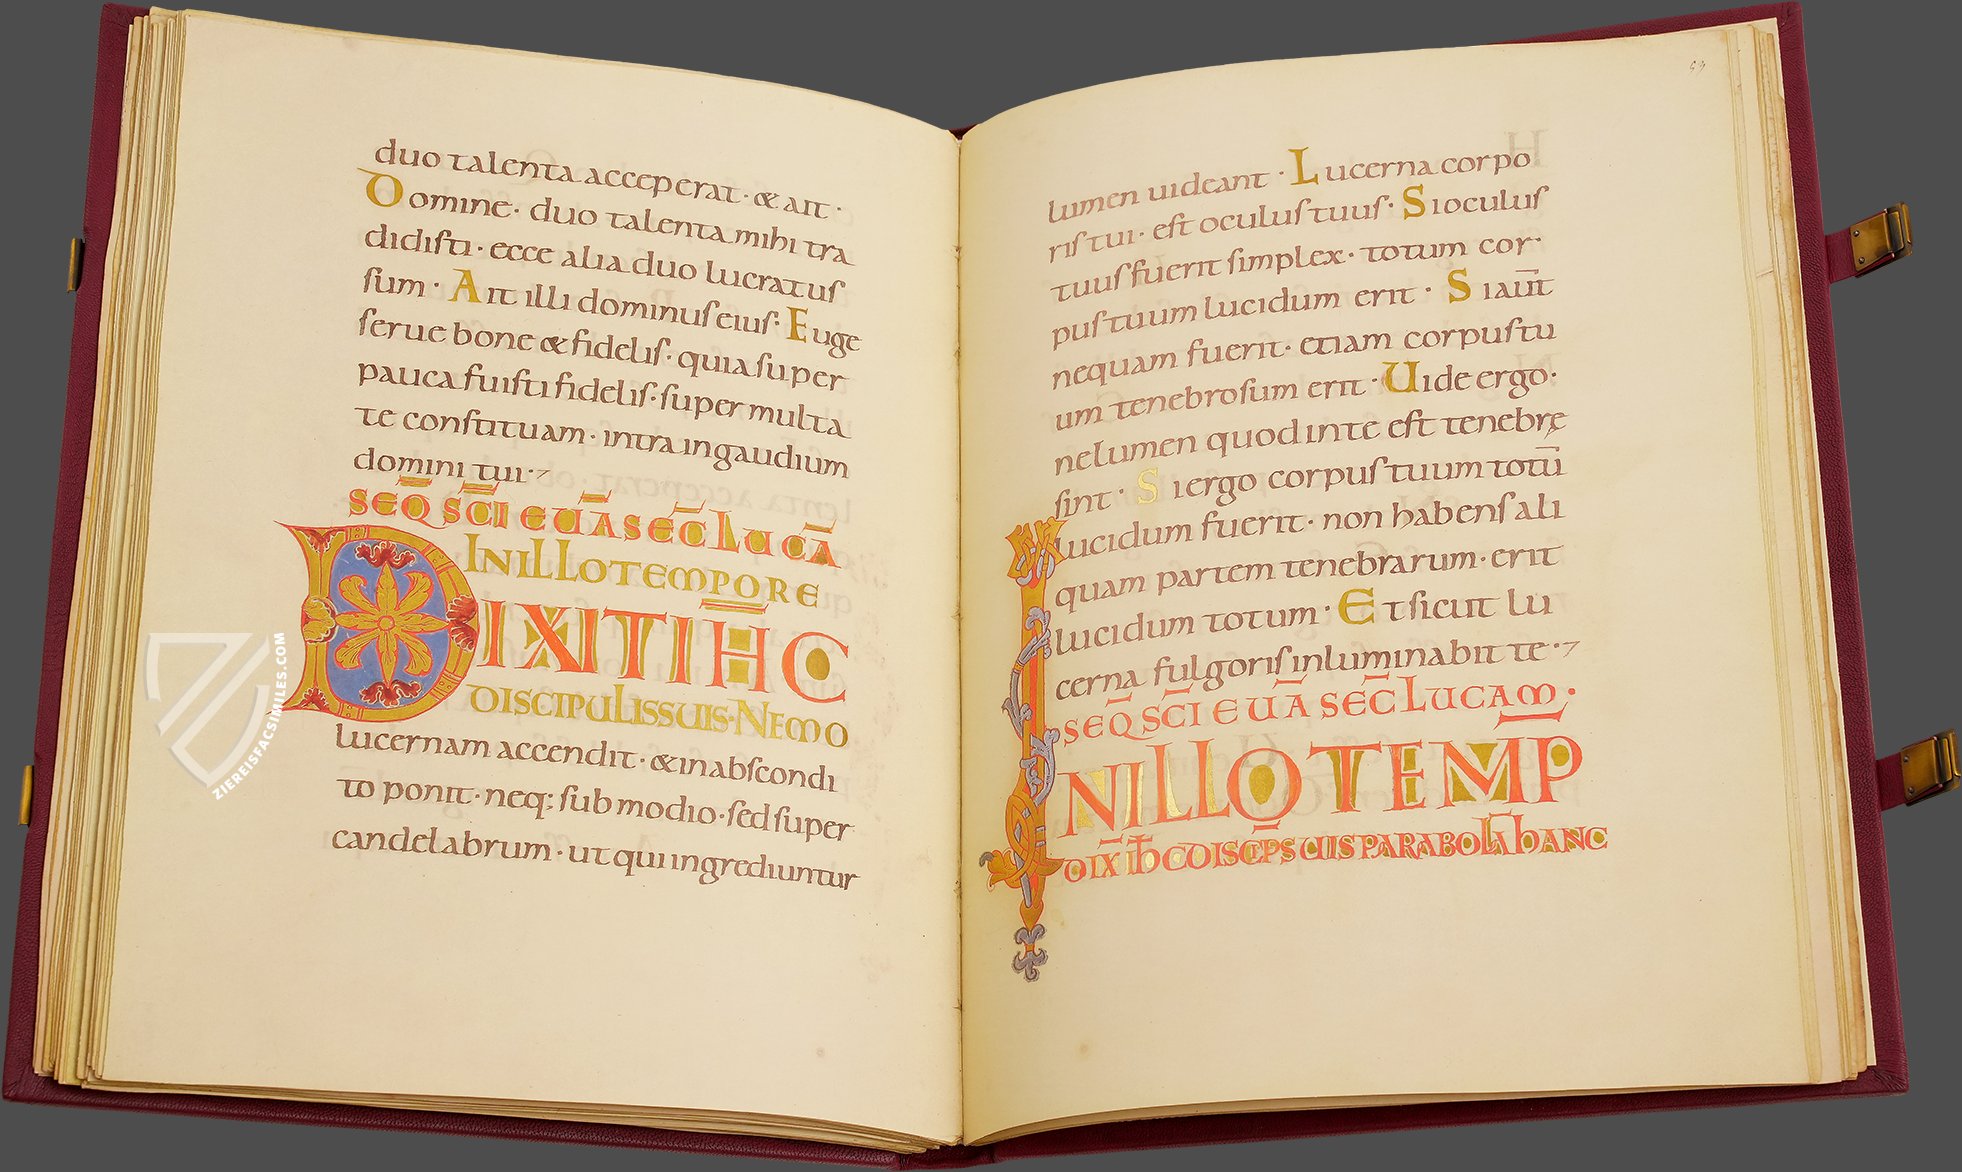 duo talenta acceperat · & ait ·
Domine · duo talenta mihi tra
didisti · ecce alia duo lucratus
sum · Ait illi dominus eius · Euge
serue bone & fidelis · quia super
pauca fuisti fidelis · super multa
te constituam · intra in gaudium
domini tui ·
SEQ̄ SC̄I EUĀ SEC̄ LUCĀ
IN ILLO TEMPORE
DIXIT IH̄C
DISCIPULIS SUIS · NEMO
lucernam accendit · & in abscondi
to ponit · neq; sub modio · sed super
candelabrum · ut qui ingrediuntur
ZIEREISFACSIMILES.COM
53
lumen uideant · Lucerna corpo
ris tui · est oculus tuus · Si oculus
tuus fuerit simplex · totum cor ·
pus tuum lucidum erit · Si aūt
nequam fuerit · etiam corpus tu
um tenebrosum erit · Uide ergo ·
ne lumen quod in te est tenebrę
sint · Si ergo corpus tuum totū
lucidum fuerit · non habens ali
quam partem tenebrarum · erit
lucidum totum · Et sicut lu
cerna fulgoris inluminabit te ·
SEQ̄ SC̄I EUĀ SEC̄ LUCAM ·
IN ILLO TEMP̄
DIX̄ IH̄C DISCIP̄S SUIS PARABOLĀ HANC